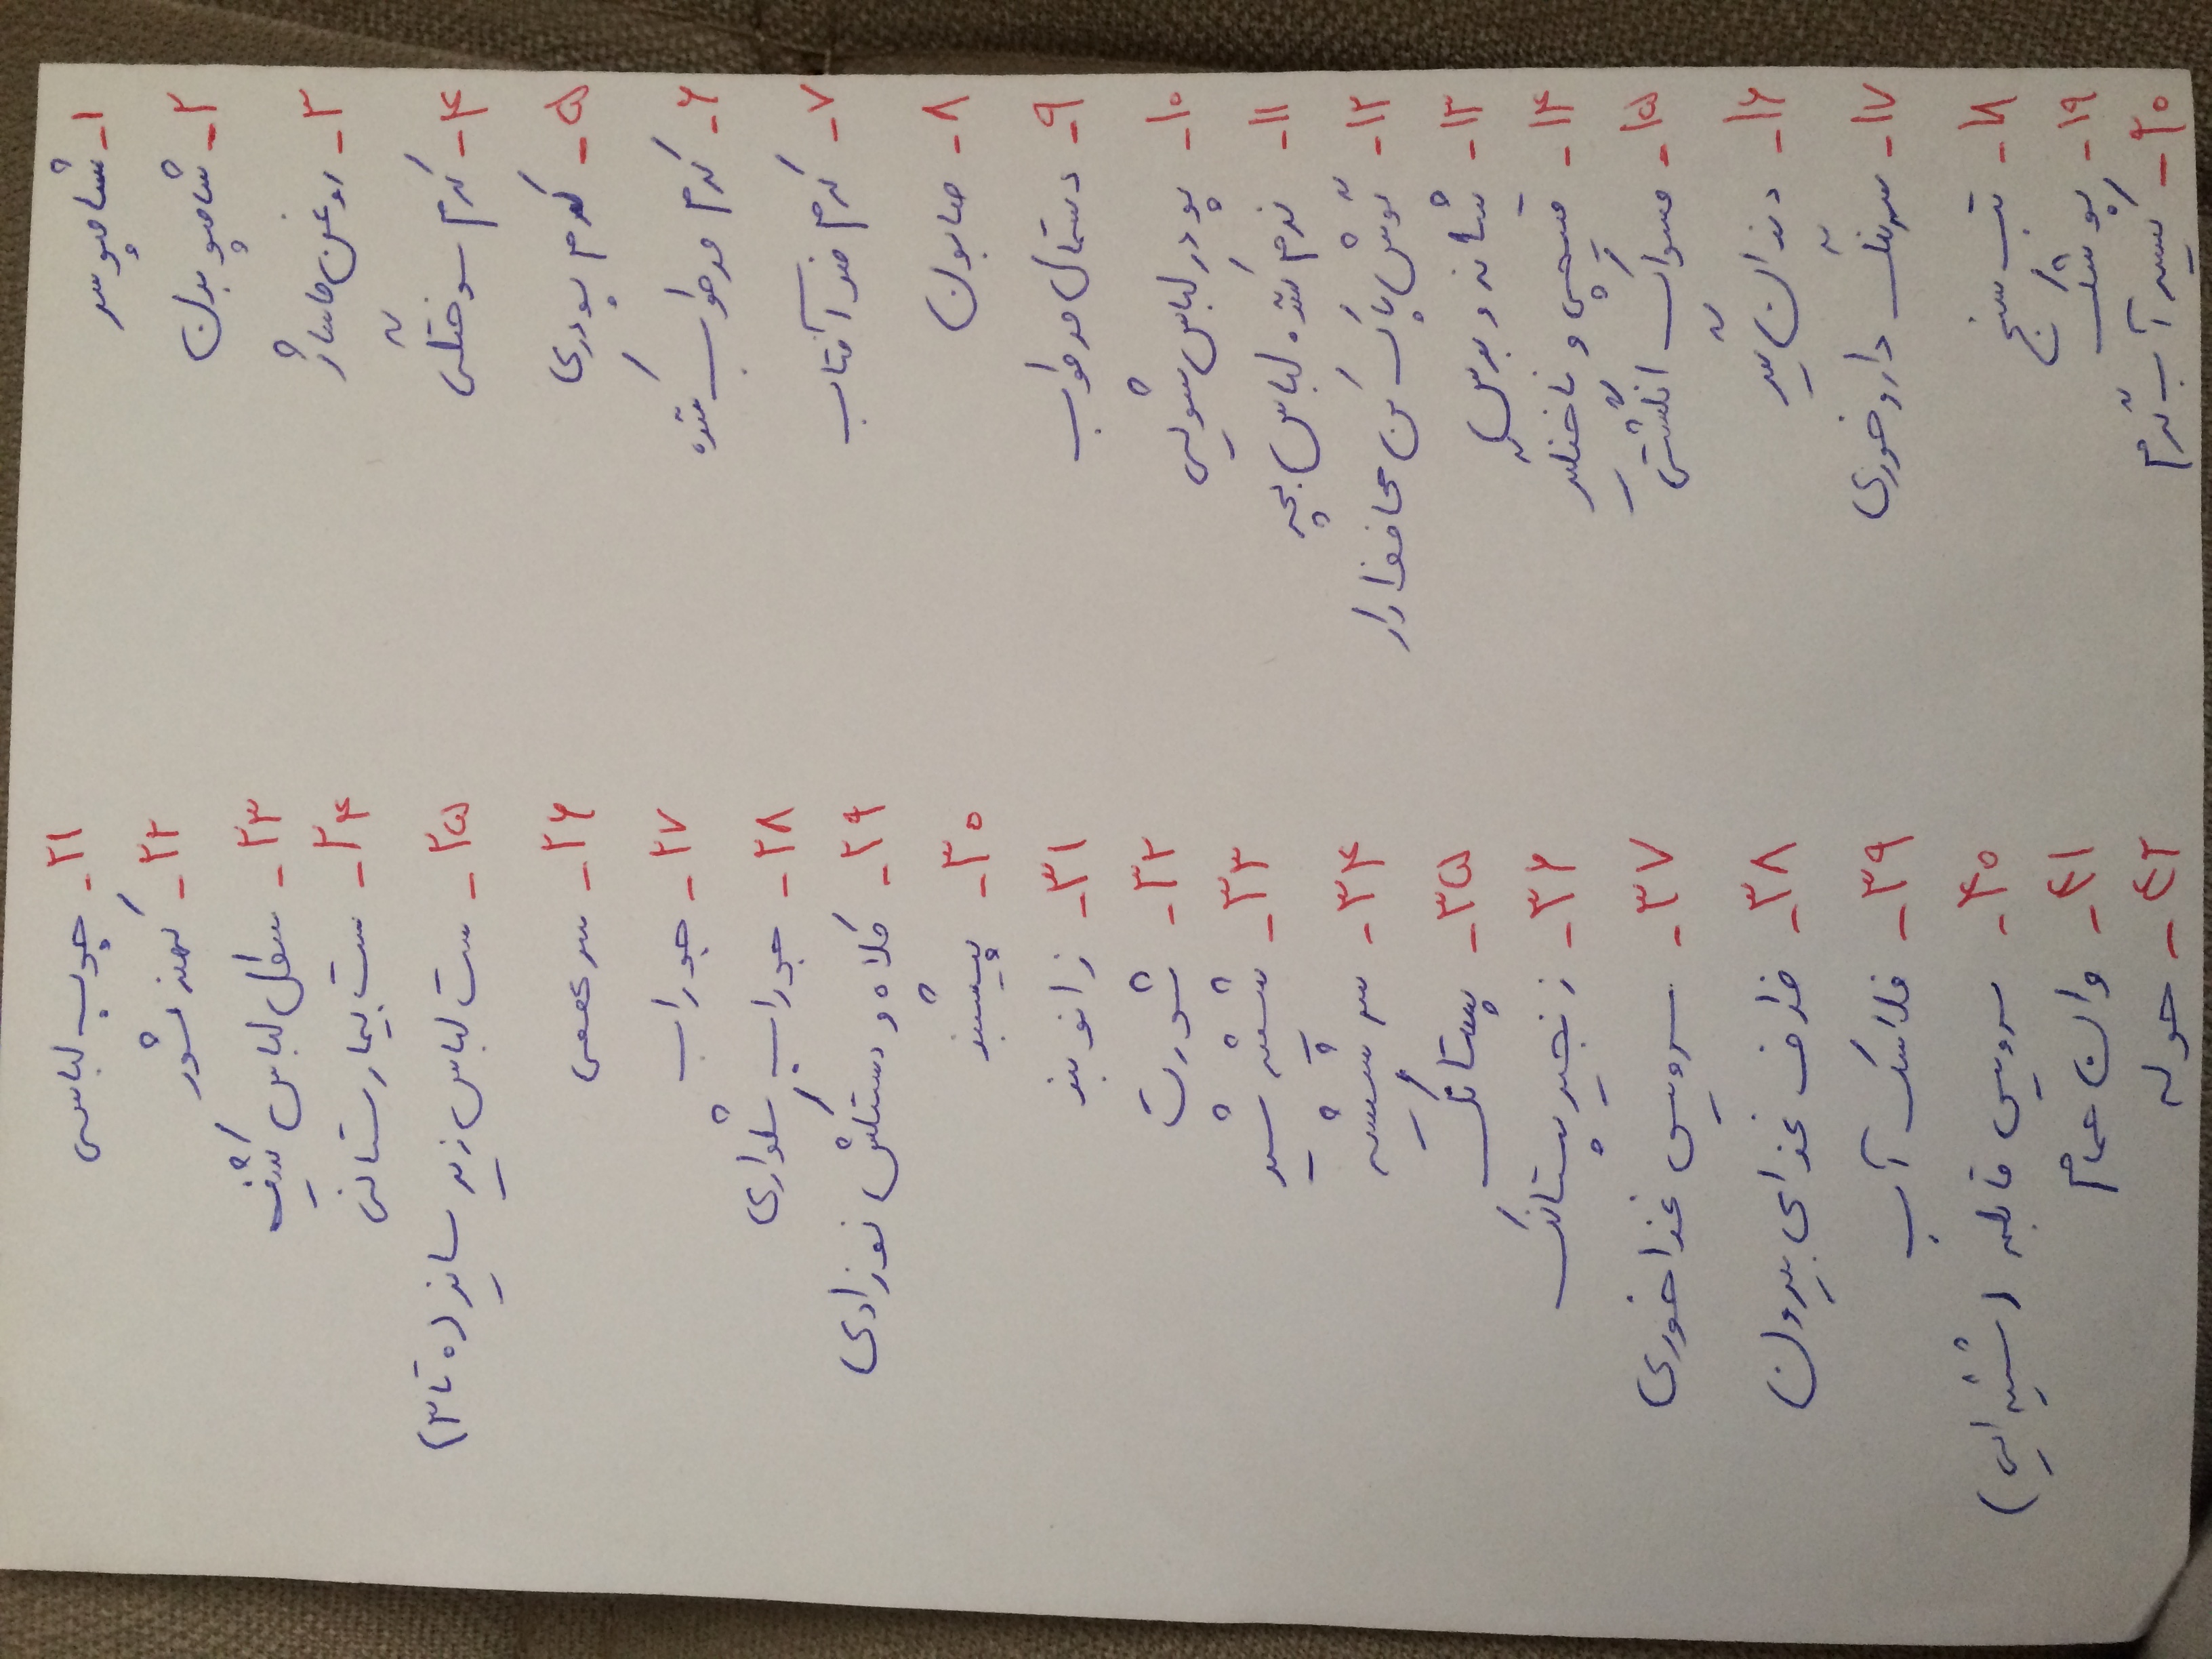 ۱- شامپو سر
۲- شامپو بدن
۳- روغن ماساژ
۴- کرم سوختگی
۵- کرم پودری
۶- کرم مرطوب کننده
۷- کرم ضد آفتاب
۸- صابون
۹- دستمال مرطوب
۱۰- پودر لباس شویی
۱۱- نرم کننده لباس بچه
۱۲- گوش پاک کن محافظ دار
۱۳- شانه و برس
۱۴- قیچی و ناخنگیر
۱۵- مسواک انگشتی
۱۶- دندان گیر
۱۷- سرنگ داروخوری
۱۸- تب سنج
۱۹- پوشک
۲۰- کیسه آب گرم
۲۱- چوب لباسی
۲۲- کهنه شور
۲۳- سطل لباس کثیف
۲۴- ست بیمارستانی
۲۵- ست لباس زیر سایز (۰ تا ۳)
۲۶- سرهمی
۲۷- جوراب
۲۸- جوراب شلواری
۲۹- کلاه و دستکش نوزادی
۳۰- پیشبند
۳۱- زانو بند
۳۲- شورت
۳۳- شیشه شیر
۳۴- سر شیشه
۳۵- پستانک
۳۶- زنجیر پستانک
۳۷- سرویس غذاخوری
۳۸- ظرف غذای بیرون
۳۹- فلاسک آب
۴۰- سرویس قابلمه (شیشه ای)
۴۱- وان حمام
۴۲- حوله